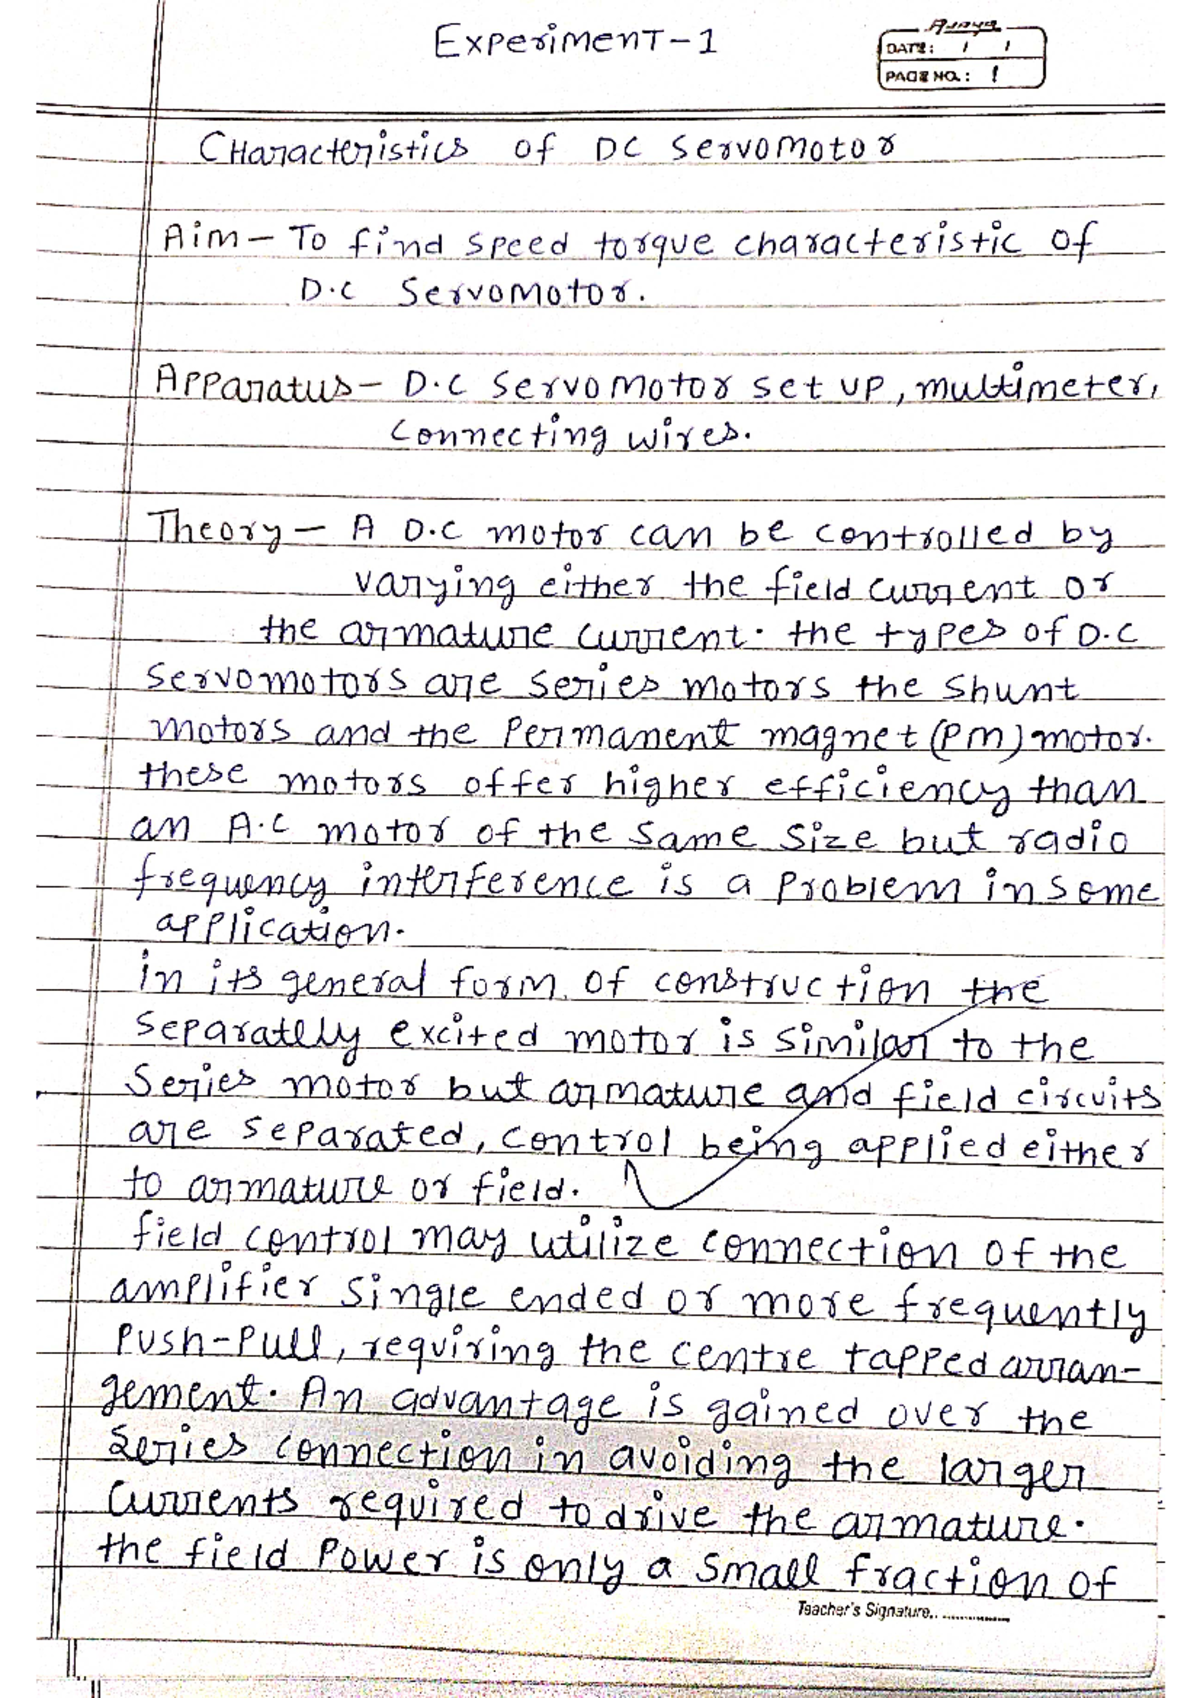 Experiment-1
Ajaya
DATE: / /
PAGE NO.: 1
Characteristics of DC Servomotor
Aim - To find speed torque characteristic of
D.C Servomotor.
Apparatus - D.C Servomotor set up, multimeter,
Connecting wires.
Theory - A D.C motor can be controlled by
varying either the field current or
the armature current. the types of D.C
Servomotors are series motors the shunt
motors and the permanent magnet (PM) motor.
these motors offer higher efficiency than
an A.C motor of the same size but radio
frequency interference is a problem in some
application.
in its general form of construction the
separatlly excited motor is similar to the
series motor but armature and field circuits
are separated, control being applied either
to armature or field.
field control may utilize connection of the
amplifier single ended or more frequently
push-pull, requiring the centre tapped arran-
gement. An advantage is gained over the
series connection in avoiding the larger
currents required to drive the armature.
the field power is only a small fraction of
Teacher's Signature................